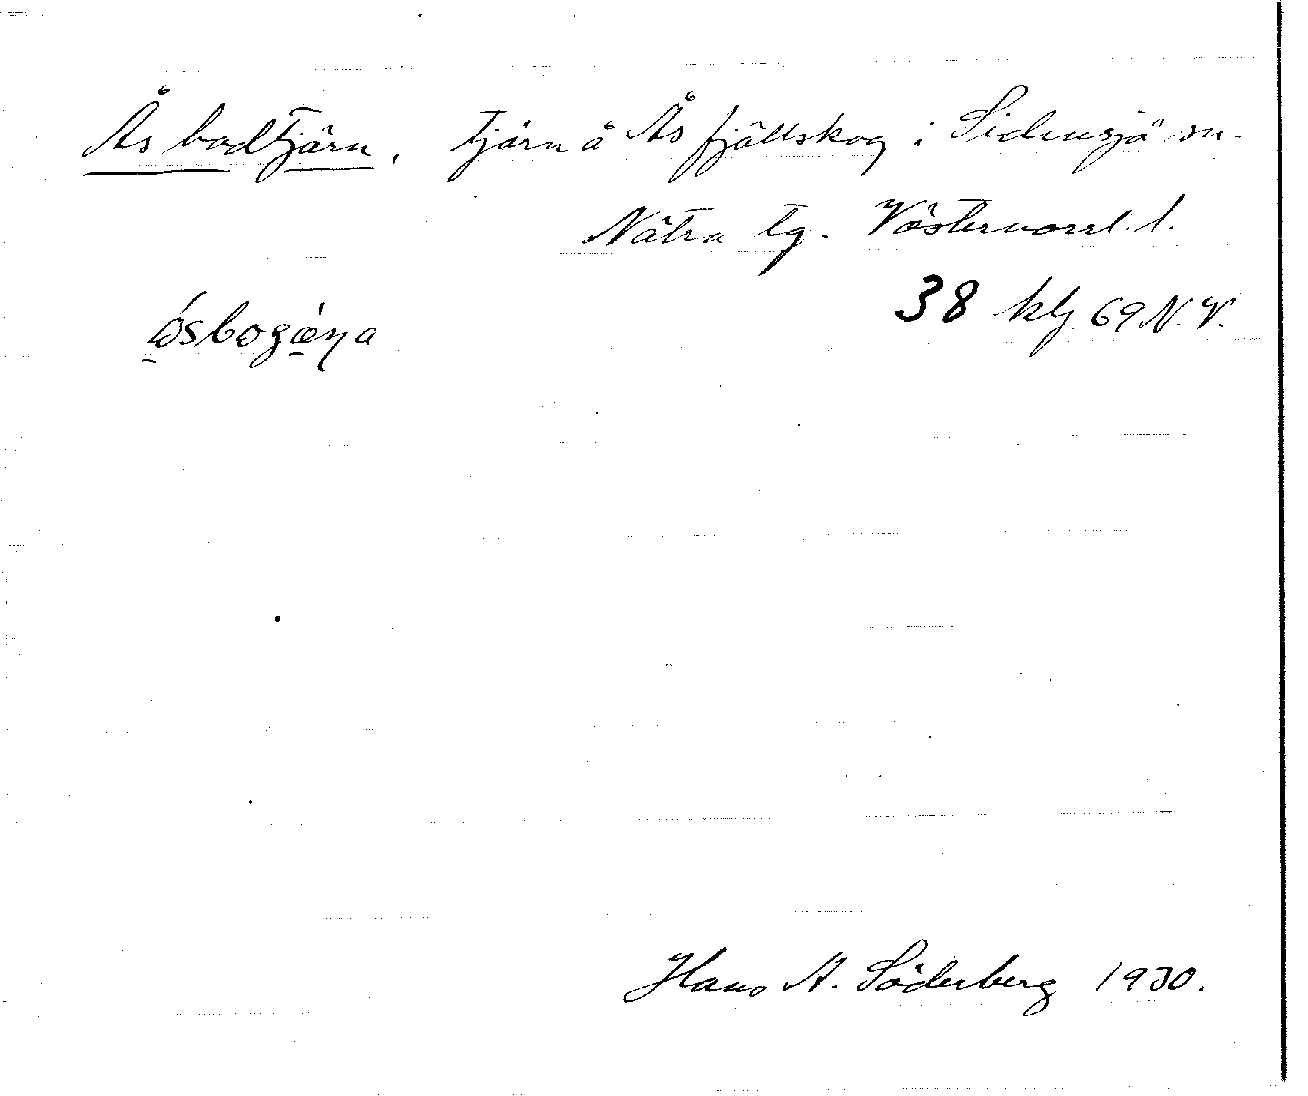 Ås bodtjärn. Tjärn å Ås fjällskog i Sidensjö sn.
Nätra tg. Västernorrl. l.
ósbogæ̀ṇa
38 kbl 69 N.V.
Hans A. Söderberg 1930.